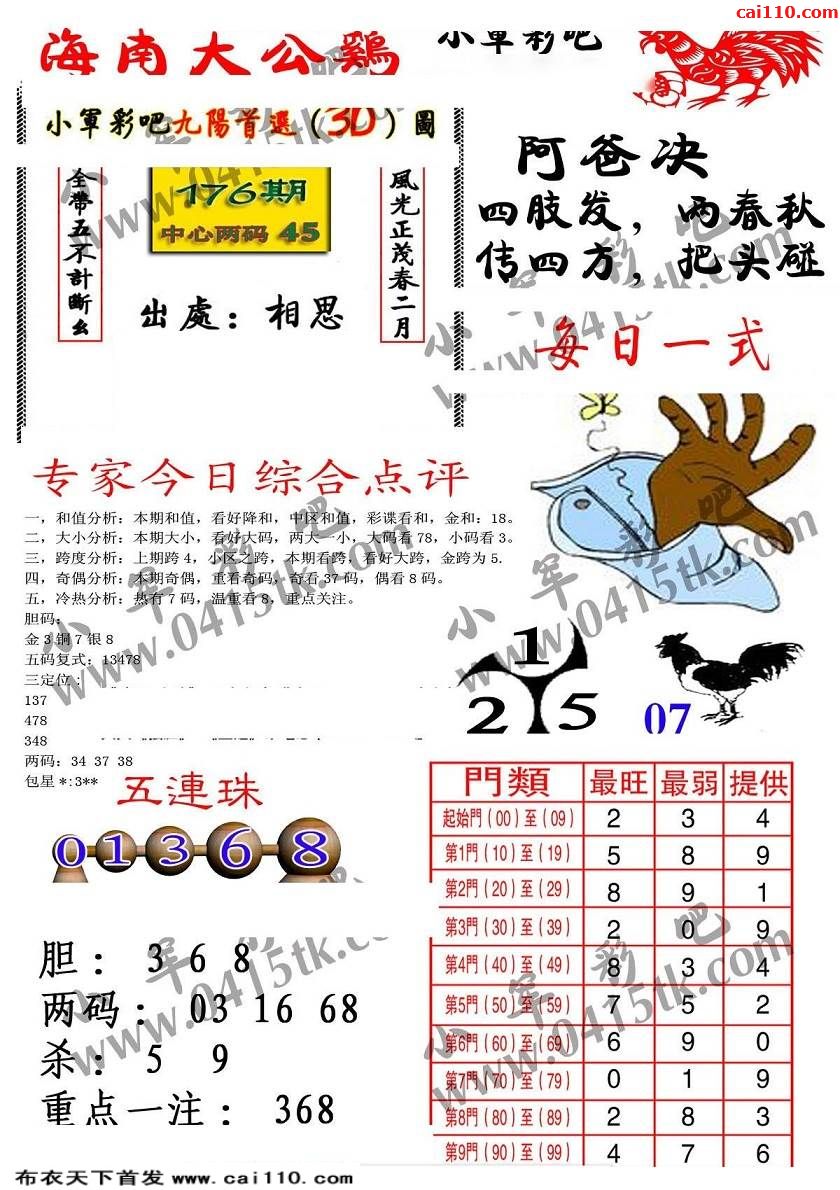 cai110.com
海南大公鷄
小軍彩吧
小軍彩吧九陽首選（3D）圖
全帶五不計斷幺
176期
中心两码 45
出處：相思
風光正茂春二月
阿爸决
四肢发，两春秋
传四方，把头碰
每日一式
专家今日综合点评
一，和值分析：本期和值，看好降和，中区和值，彩谍看和，金和：18。
二，大小分析：本期大小，看好大码，两大一小，大码看78，小码看3。
三，跨度分析：上期跨4，小区之跨，本期看跨，看好大跨，金跨为5.
四，奇偶分析：本期奇偶，重看奇码，奇看37码，偶看8码。
五，冷热分析：热有7码，温重看8，重点关注。
胆码：
金3铜7银8
五码复式：13478
三定位：
137
478
348
两码：34 37 38
包星*:3**
1
2 5
07
五連珠
0 1 3 6 8
胆： 3 6 8
两码： 03 16 68
杀： 5 9
重点一注： 368
門類 最旺 最弱 提供
起始門（00）至（09） 2 3 4
第1門（10）至（19） 5 8 9
第2門（20）至（29） 8 9 1
第3門（30）至（39） 2 0 9
第4門（40）至（49） 8 3 4
第5門（50）至（59） 7 5 2
第6門（60）至（69） 6 9 0
第7門（70）至（79） 0 1 9
第8門（80）至（89） 2 8 3
第9門（90）至（99） 4 7 6
小军彩吧
www.0415tk.com
小军彩吧
www.0415tk.com
小军彩吧
www.0415tk.com
小军彩吧
www.0415tk.com
小军彩吧
www.0415tk.com
小军彩吧
www.0415tk.com
布衣天下首发 www.cai110.com